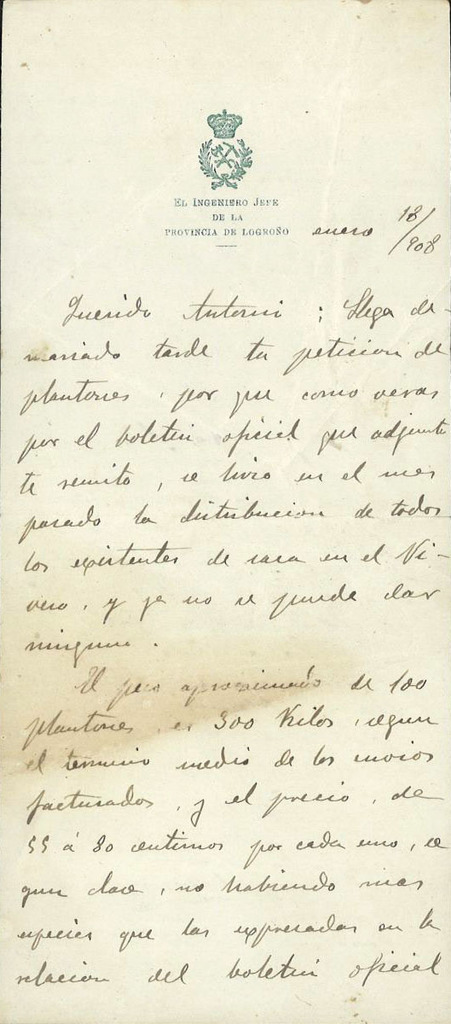 EL INGENIERO JEFE
DE LA
PROVINCIA DE LOGROÑO
enero 18/908
Querido Antonio: Llega de-
masiado tarde tu peticion de
plantones, por que como veras
por el boletin oficial que adjunto
te remito, se hizo en el mes
pasado la distribucion de todos
los existentes de saca en el Vi-
vero, y ya no se puede dar
ninguno.
El peso aproximado de 100
plantones, es 300 Kilos, segun
el termino medio de los envios
facturados, y el precio, de
55 á 80 centimos por cada uno, se
gun clase, no habiendo mas
especies que las expresadas en la
relacion del boletin oficial